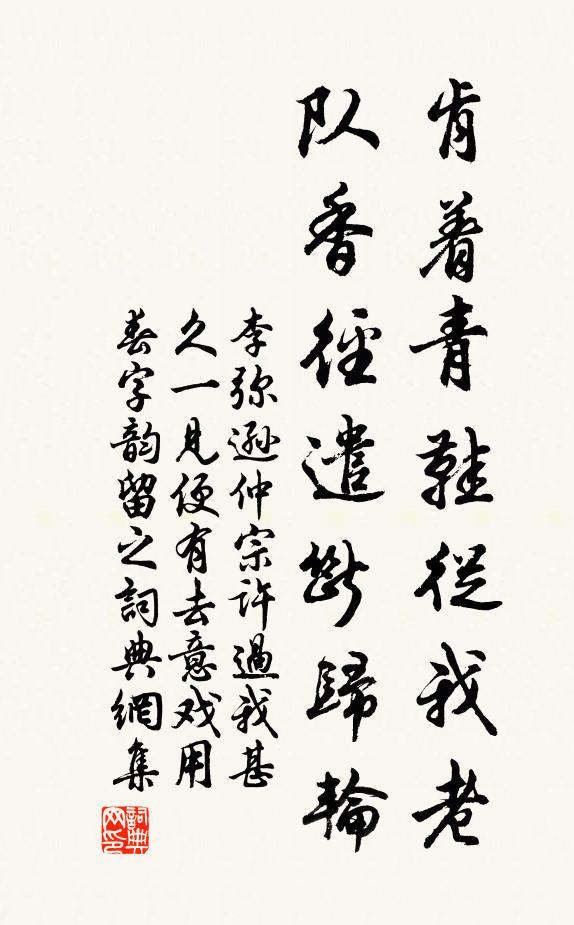 肯着青鞋從我老
队香徑遣斷歸輪
李弥遜仲宗許過我甚
久一見便有去意戏用
春字韵留之詞典網集
詞典网印